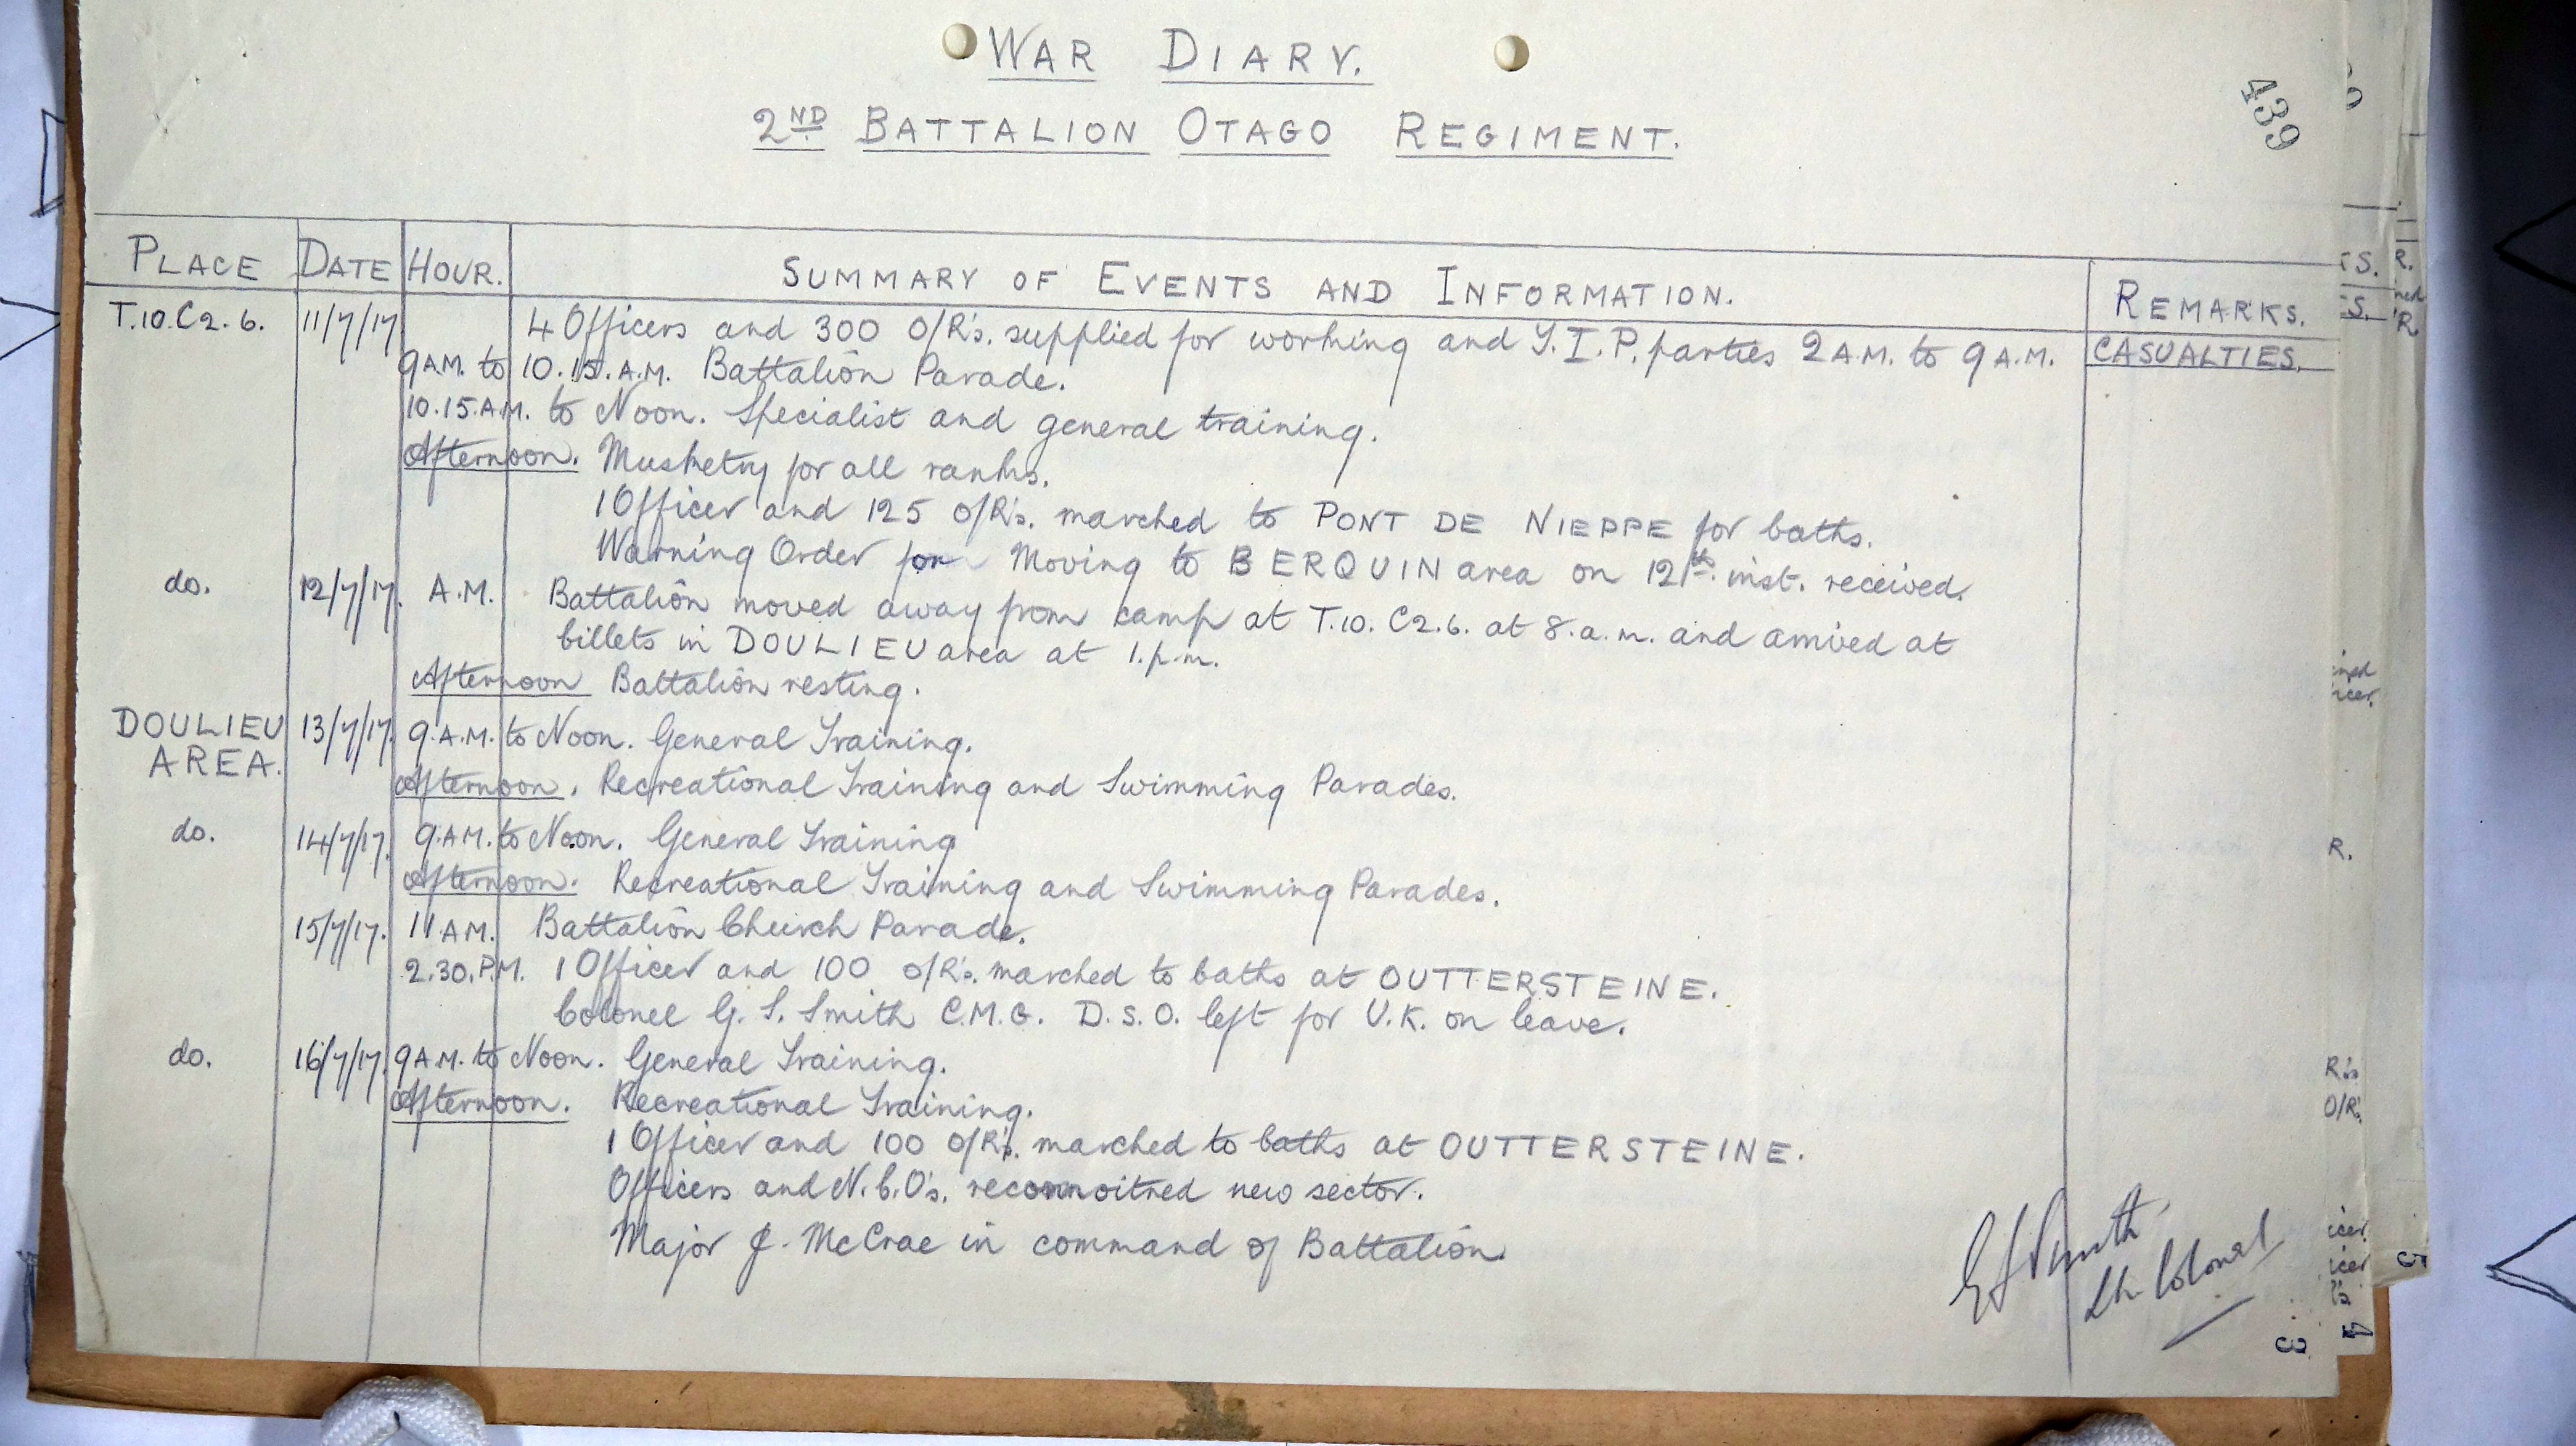 WAR DIARY.
439
2ND BATTALION OTAGO REGIMENT.
PLACE DATE HOUR. SUMMARY OF EVENTS AND INFORMATION. REMARKS.
T.10.C2.6. 11/7/17 4 Officers and 300 O/R's. supplied for working and Y.I.P. parties 2 A.M. to 9 A.M. CASUALTIES.
9 A.M. to 10.15. A.M. Battalion Parade.
10.15 A.M. to Noon. Specialist and general training.
Afternoon. Musketry for all ranks.
1 Officer and 125 O/R's. marched to PONT DE NIEPPE for baths.
Warning Order for Moving to BERQUIN area on 12th. inst. received.
do. 12/7/17. A.M. Battalion moved away from camp at T.10. C2.6. at 8.a.m. and arrived at
billets in DOULIEU area at 1.p.m.
Afternoon Battalion resting.
DOULIEU AREA. 13/7/17. 9.A.M. to Noon. General Training.
Afternoon. Recreational Training and Swimming Parades.
do. 14/7/17. 9.A.M. to Noon. General Training
Afternoon. Recreational Training and Swimming Parades.
15/7/17. 11 A.M. Battalion Church Parade.
2.30.P.M. 1 Officer and 100 O/R's. marched to baths at OUTTERSTEINE.
Colonel G. S. Smith C.M.G. D.S.O. left for U.K. on leave.
do. 16/7/17. 9 A.M. to Noon. General Training.
Afternoon. Recreational Training.
1 Officer and 100 O/R's. marched to baths at OUTTERSTEINE.
Officers and N.C.O's. reconnoitred new sector.
Major J. McCrae in command of Battalion.
GSSmith
Lt. Colonel
3
4
5